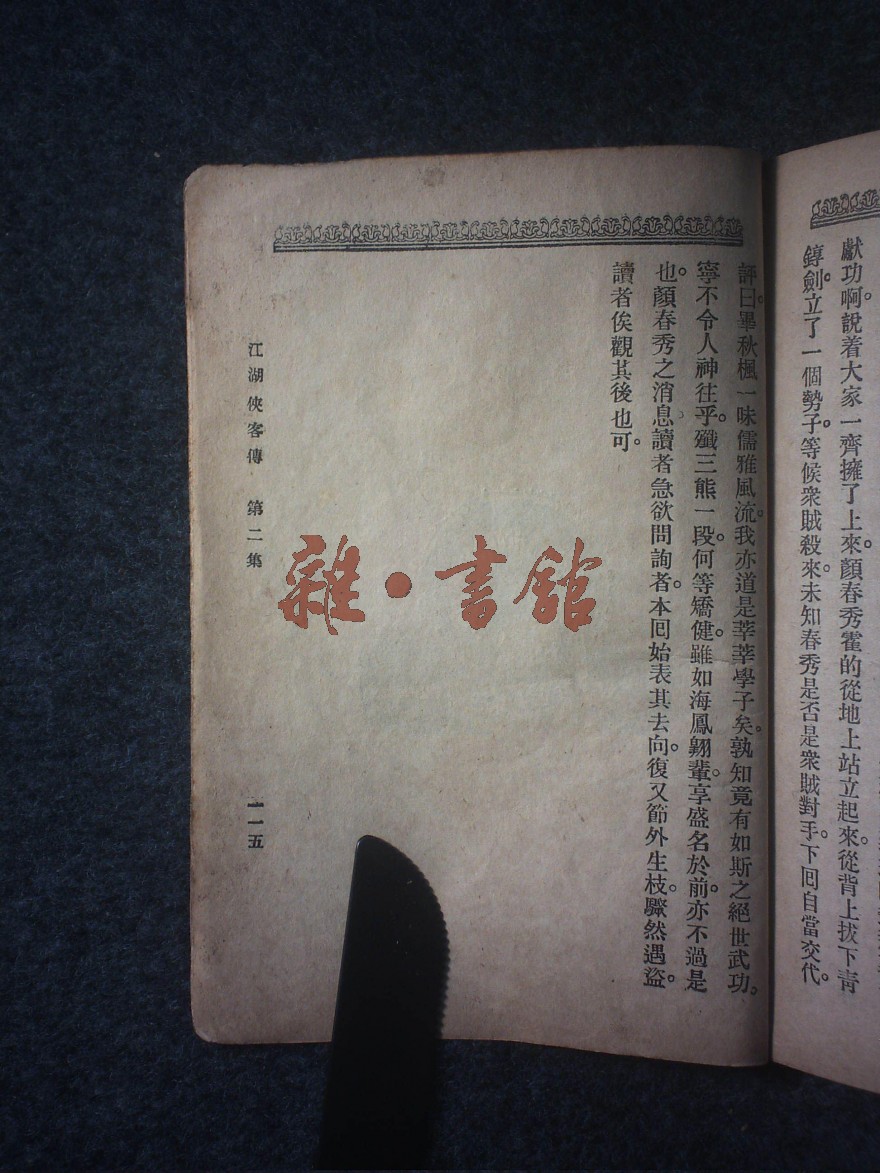 獻功啊。說着大家一齊擁了上來。顏春秀霍的從地上站立起來。從背上拔下青
錞劍。立了一個勢子。等候衆賊殺來。未知春秀是否是衆賊對手。下囘自當交代。
評曰。畢秋楓一味儒雅風流。我亦道是莘莘學子矣。孰知竟有如斯之絕世武功。
寧不令人神往乎。殲三熊一段。何等矯健。雖如海鳳翱輩。享盛名於前。亦不過是
也。顏春秀之消息讀者急欲問詢者。本囘始表其去向。復又節外生枝。驟然遇盜。
讀者俟觀其後也可。
江湖俠客傳　第二集
一一五
雜·書館